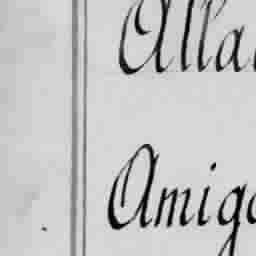 Alla
Amigo